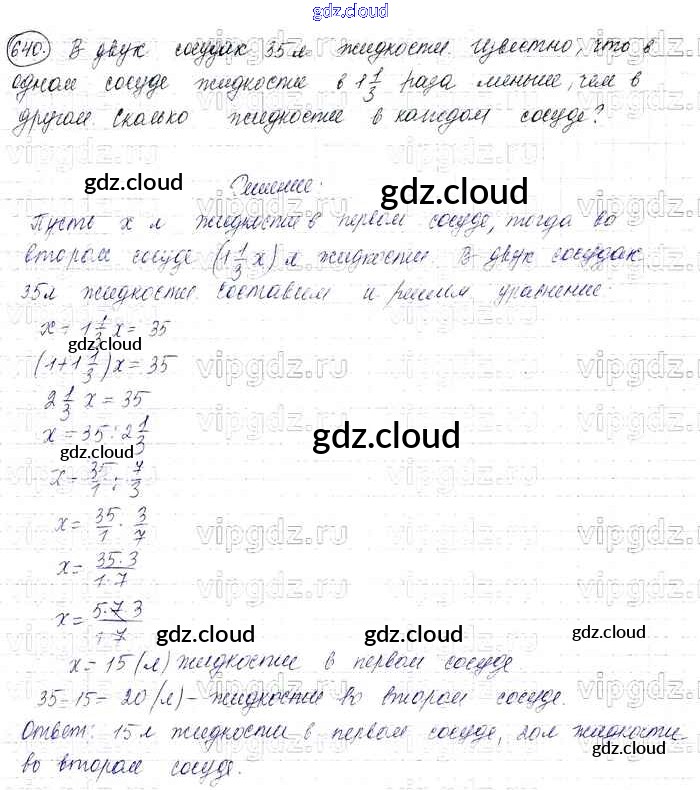 gdz.cloud
640. В двух сосудах 35 л жидкости. Известно, что в
одном сосуде жидкости в 1 1/3 раза меньше, чем в
другом. Сколько жидкости в каждом сосуде?
gdz.cloud Решение: gdz.cloud
Пусть x л жидкости в первом сосуде, тогда во
втором сосуде (1 1/3 x) л жидкости. В двух сосудах
35 л жидкости. Составим и решим уравнение:
x + 1 1/3 x = 35
gdz.cloud
(1 + 1 1/3) x = 35
2 1/3 x = 35
x = 35 : 2 1/3
gdz.cloud
gdz.cloud
x = 35/1 : 7/3
x = 35/1 · 3/7
x = 35·3/1·7
x = 5·7·3/1·7
gdz.cloud
gdz.cloud
x = 15 (л) жидкости в первом сосуде.
35 - 15 = 20 (л) - жидкости во втором сосуде.
Ответ: 15 л жидкости в первом сосуде, 20 л жидкости
gdz.cloud
во втором сосуде.
vipgdz.ru vipgdz.ru vipgdz.ru